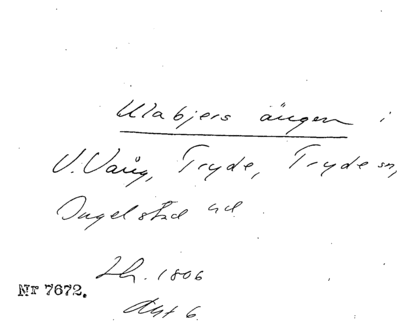 Ulabjers ängen i
V. Vång, Tryde, Tryde sn,
Ingelstad hd.
Lh. 1806
Akt 6
Nr 7672.